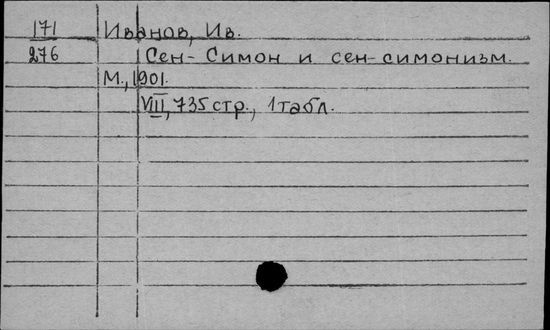 171 Иванов, Ив.
276 Сен-Симон и сен-симонизм.
М., 1901.
VIII, 735 стр., 1 табл.